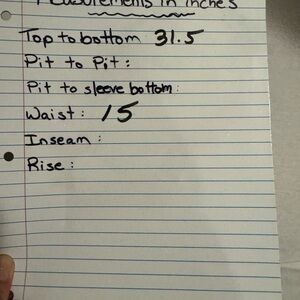 Measurements in inches
Top to bottom 31.5
Pit to Pit :
Pit to sleeve bottom :
Waist : 15
Inseam :
Rise :